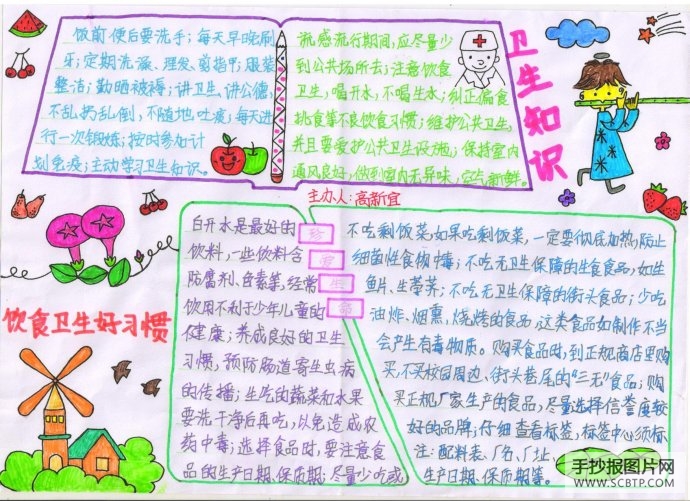 饭前便后要洗手；每天早晚刷
牙；定期洗澡、理发、剪指甲；服装
整洁；勤晒被褥；讲卫生，讲公德，
不乱扔乱倒，不随地吐痰；每天进
行一次锻炼；按时参加计
划免疫；主动学习卫生知识。
流感流行期间，应尽量少
到公共场所去；注意饮食
卫生，喝开水，不喝生水；纠正偏食
挑食等不良饮食习惯；维护公共卫生，
并且要爱护公共卫生设施；保持室内
通风良好，做到室内无异味，空气新鲜。
卫生知识
主办人：高新宜
饮食卫生好习惯
白开水是最好的
饮料，一些饮料含
防腐剂、色素等，经常
饮用不利于少年儿童的
健康；养成良好的卫生
习惯，预防肠道寄生虫病
的传播；生吃的蔬菜和水果
要洗干净后再吃，以免造成农
药中毒；选择食品时，要注意食
品的生产日期、保质期；尽量少吃或
珍
爱
生
命
不吃剩饭菜，如果吃剩饭菜，一定要彻底加热，防止
细菌性食物中毒；不吃无卫生保障的生食食品，如生
鱼片、生荸荠；不吃无卫生保障的街头食品；少吃
油炸、烟熏、烧烤的食品，这类食品如制作不当
会产生有毒物质。购买食品时，到正规商店里购
买，不买校园周边、街头巷尾的“三无”食品；购
买正规厂家生产的食品，尽量选择信誉度较
好的品牌；仔细查看标签，标签中必须标
注：配料表、厂名、厂址、
生产日期、保质期等。
手抄报图片网
WWW.SCBTP.COM